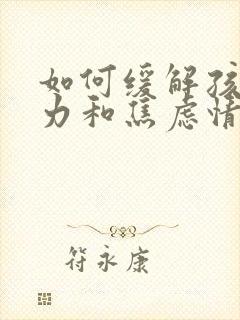 如何缓解孩
力和焦虑情
符永康